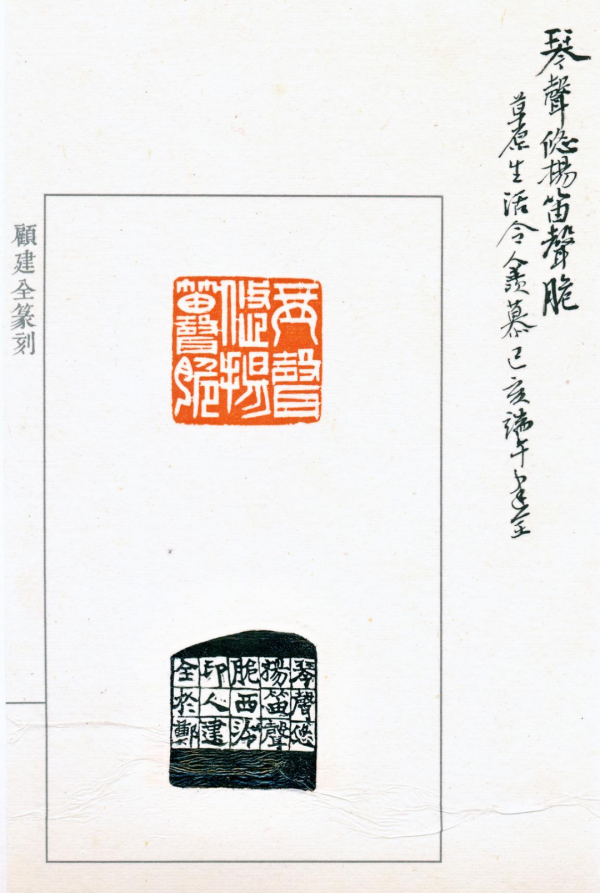 琴聲悠揚笛聲脆
草原生活令人羨慕己亥端午建全
琴聲
悠揚
笛聲脆
琴聲悠
揚笛聲
脆西泠
印人建
全於鄭
顧建全篆刻